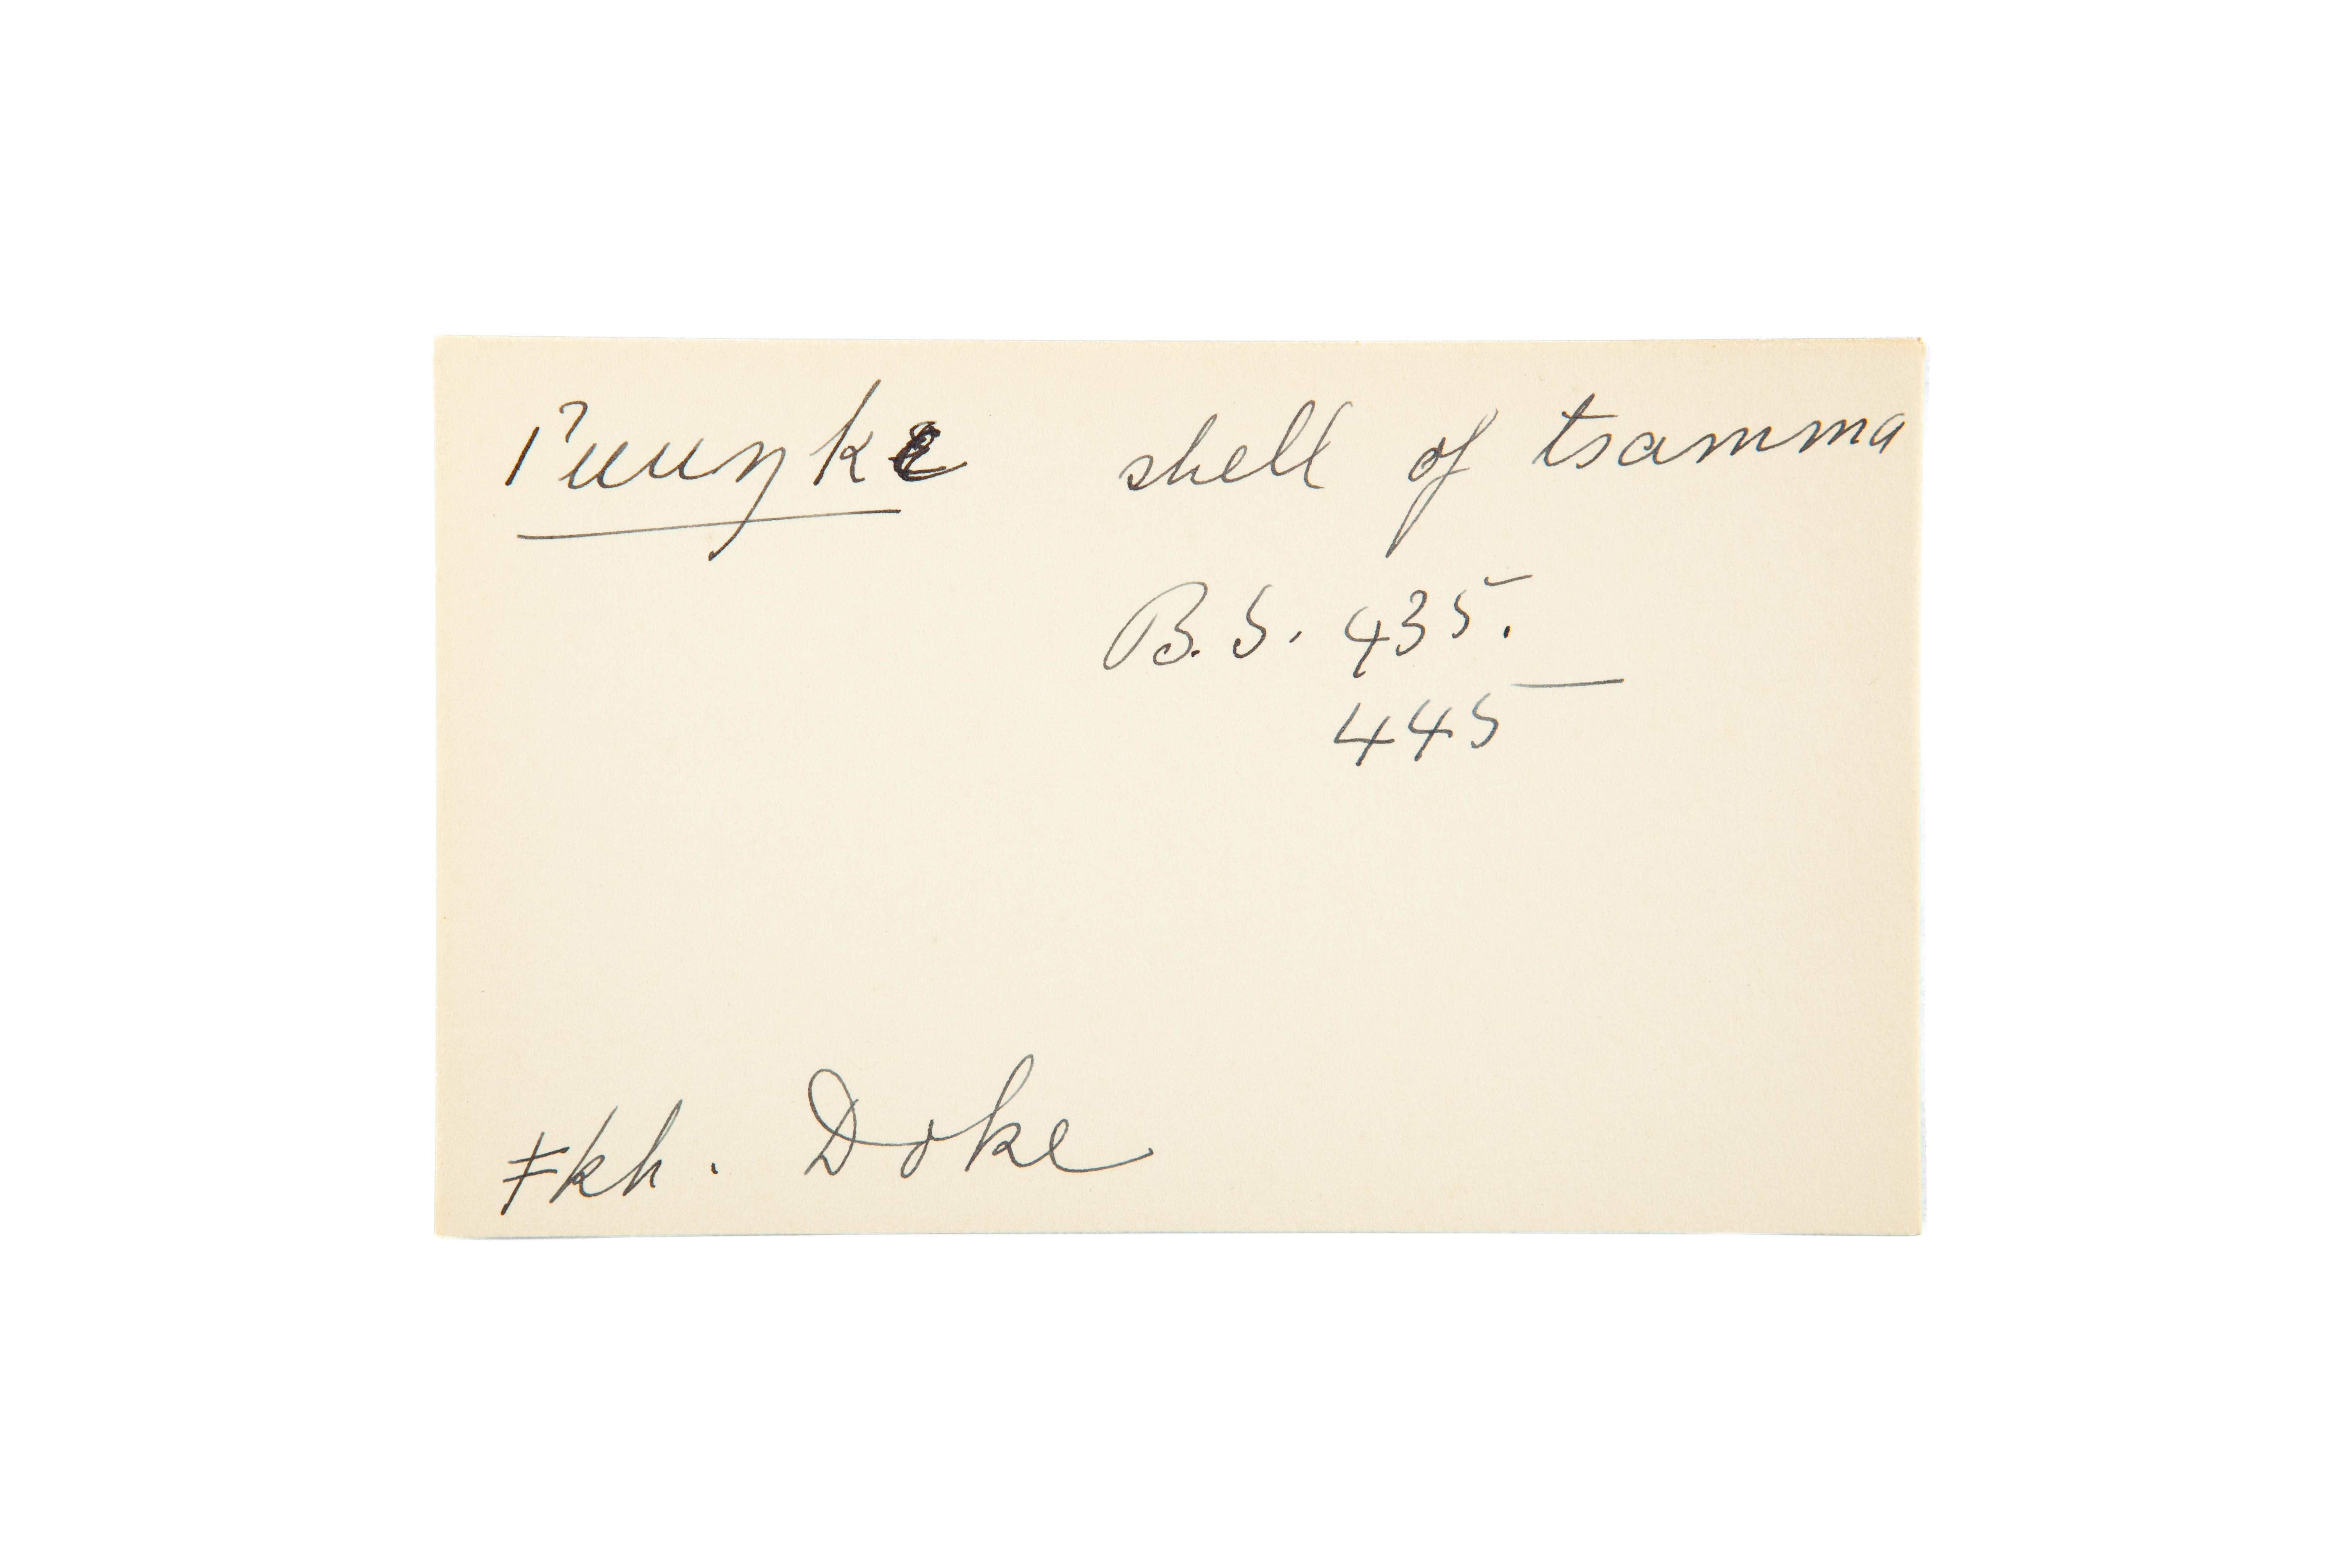 ǀʔuuŋkɛ shell of tsamma
B.S. 435.
445
ǂkh. Doke